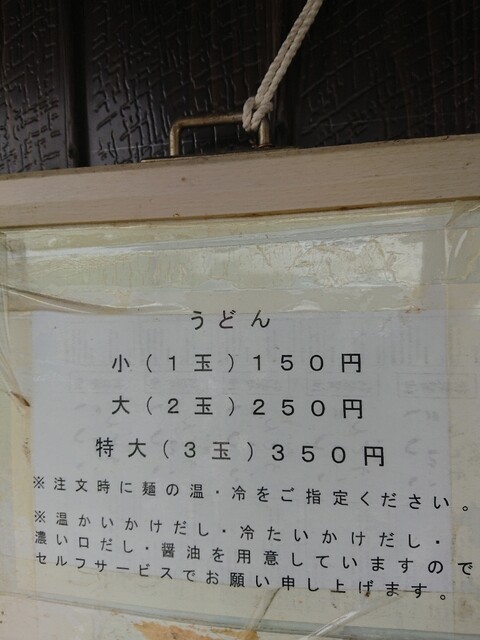 うどん
小(1玉)150円
大(2玉)250円
特大(3玉)350円
※注文時に麺の温・冷をご指定ください。
※温かいかけだし・冷たいかけだし・
濃い口だし・醤油を用意していますので
セルフサービスでお願い申し上げます。